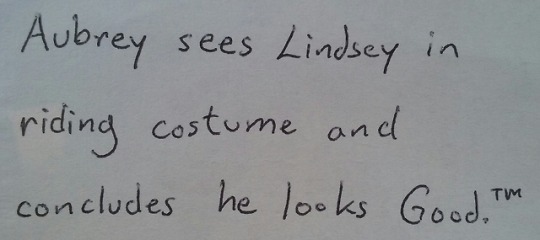 Aubrey sees Lindsey in
riding costume and
concludes he looks Good.™